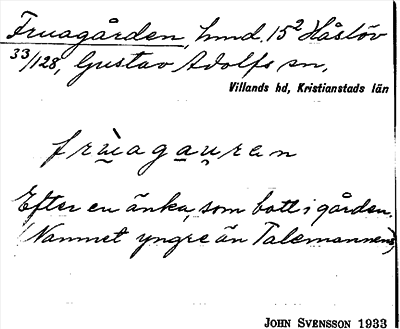 Fruagården, hmd. 15² Håslöv
33/128, Gustav Adolfs sn,
Villands hd, Kristianstads län
frùagau̯ren
Efter en änka, som bott i gården.
(Namnet yngre än Talemannens)
JOHN SVENSSON 1933